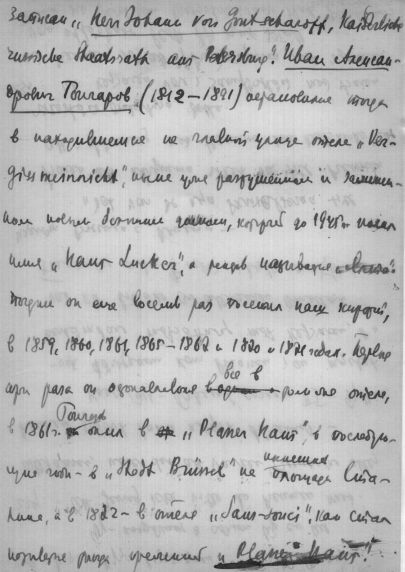 записан „Herr Johann von Gontscharoff, Kaiserliche
russische Staatsrath aus Petersburg". Иван Алексан-
дрович Гончаров (1812–1891) остановился тогда
в находившемся на главной улице отеле „Ver-
giss mein nicht", ныне уже разрушенном и замен-
ном новым большим домом, который до 1945 г. носил
имя „Haus Lucke", а теперь называется
Позднее он еще восемь раз посетил наш курорт,
в 1859, 1860, 1861, 1865–1867 и 1870 и 1871 годах. Первые
три раза он останавливался все в том же отеле,
в 1861 г. Гончаров жил в „Planer Haus", в последую-
щие годы - в „Stadt Brüssel" на нынешней площади Ста-
лина, а в 1872 - в отеле „Sans-Souci", как стал
называться